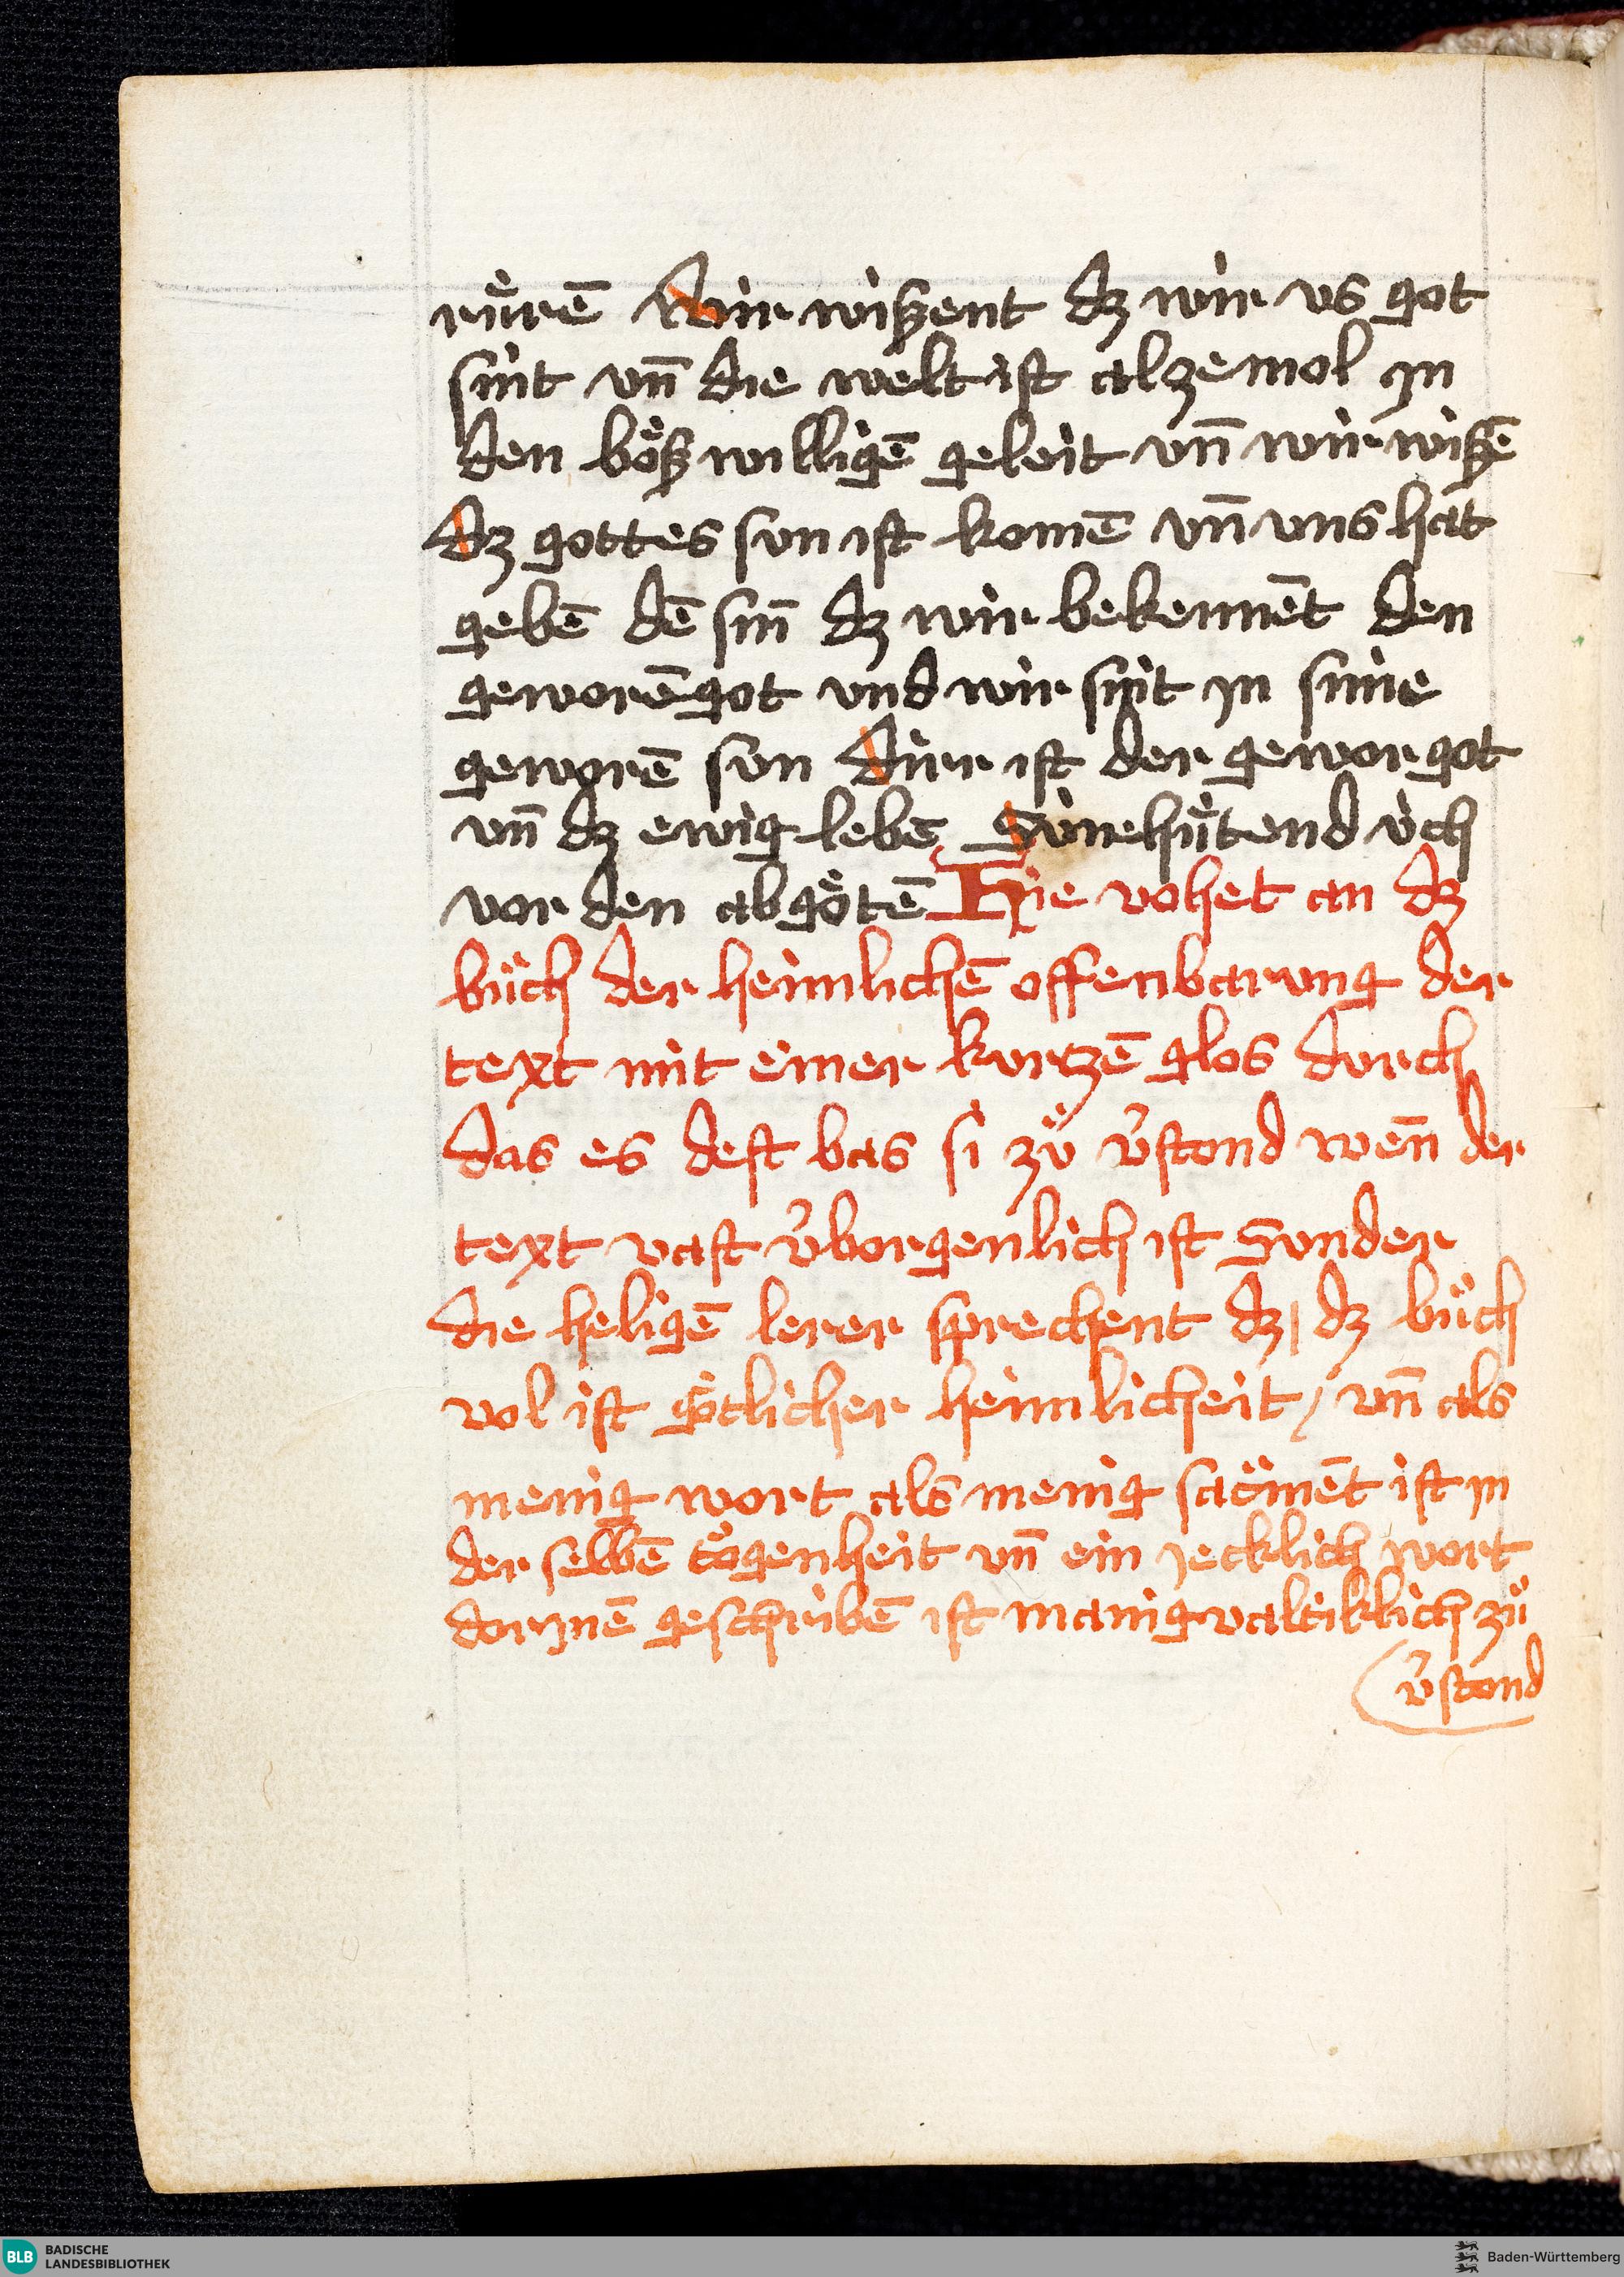 rüͤrē Wir wiſzent dz wir vs got
sint vn̄ die welt iſt alzemol in
den boͤſz willigē geleit vn̄ wir wiſzē
dz gottes sun iſt komē vn̄ vns hat
gebē dē sin̄ dz wir bekennēt den
geworē got vnd wir sint in sime
geworē sun Dirr iſt der gewor got
vn̄ dz ewig lebē Sùn huͤtend v̇ch
vor den abgoͤtē Hie vohet an dz
bůch der heimlichē offenbarung der
text mit einer kurtzē glos durch
das es deſt bas si zů v̓ſtond wen̄ der
text vaſt v̓borgenlich iſt Sunder
die heligē lerer ſprechent dz / dz bůch
vol iſt goͤtlicher heimlicheit / vn̄ als
menig wort als menig sacͣmēt iſt in
der selbē toͮgenheit vn̄ ein iecklich wort
dorinnē geschribē iſt manigvaltiklich zů
v̓ſtond
BLB BADISCHE
LANDESBIBLIOTHEK
Baden-Württemberg